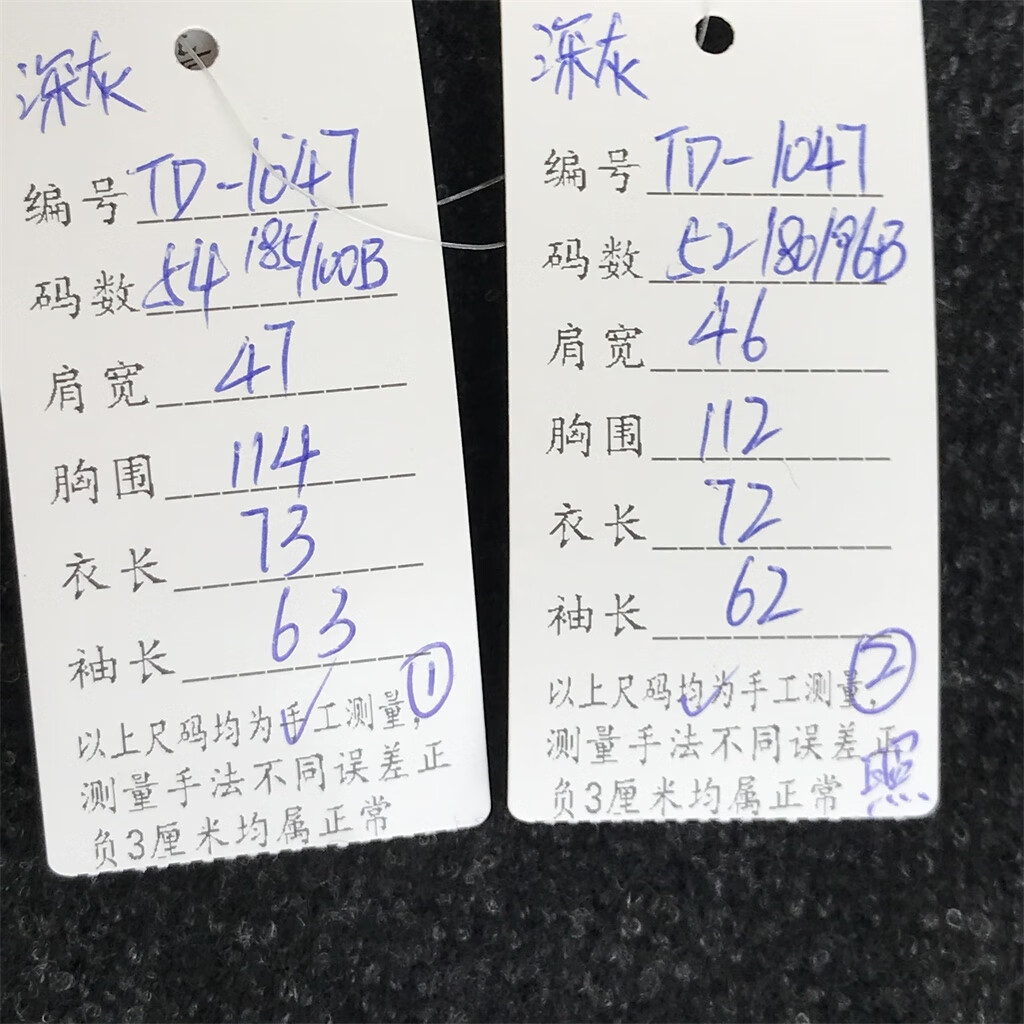 深灰
编号 TD-1047
码数 54 185/100B
肩宽 47
胸围 114
衣长 73
袖长 63
①
以上尺码均为手工测量,
测量手法不同误差正
负3厘米均属正常
深灰
编号 TD-1047
码数 52 180/96B
肩宽 46
胸围 112
衣长 72
袖长 62
②
以上尺码均为手工测量,
测量手法不同误差正
负3厘米均属正常
照